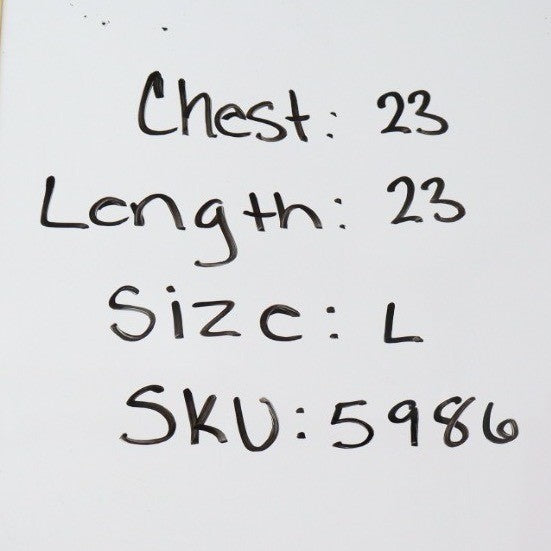 Chest: 23
Length: 23
Size: L
SKU: 5986